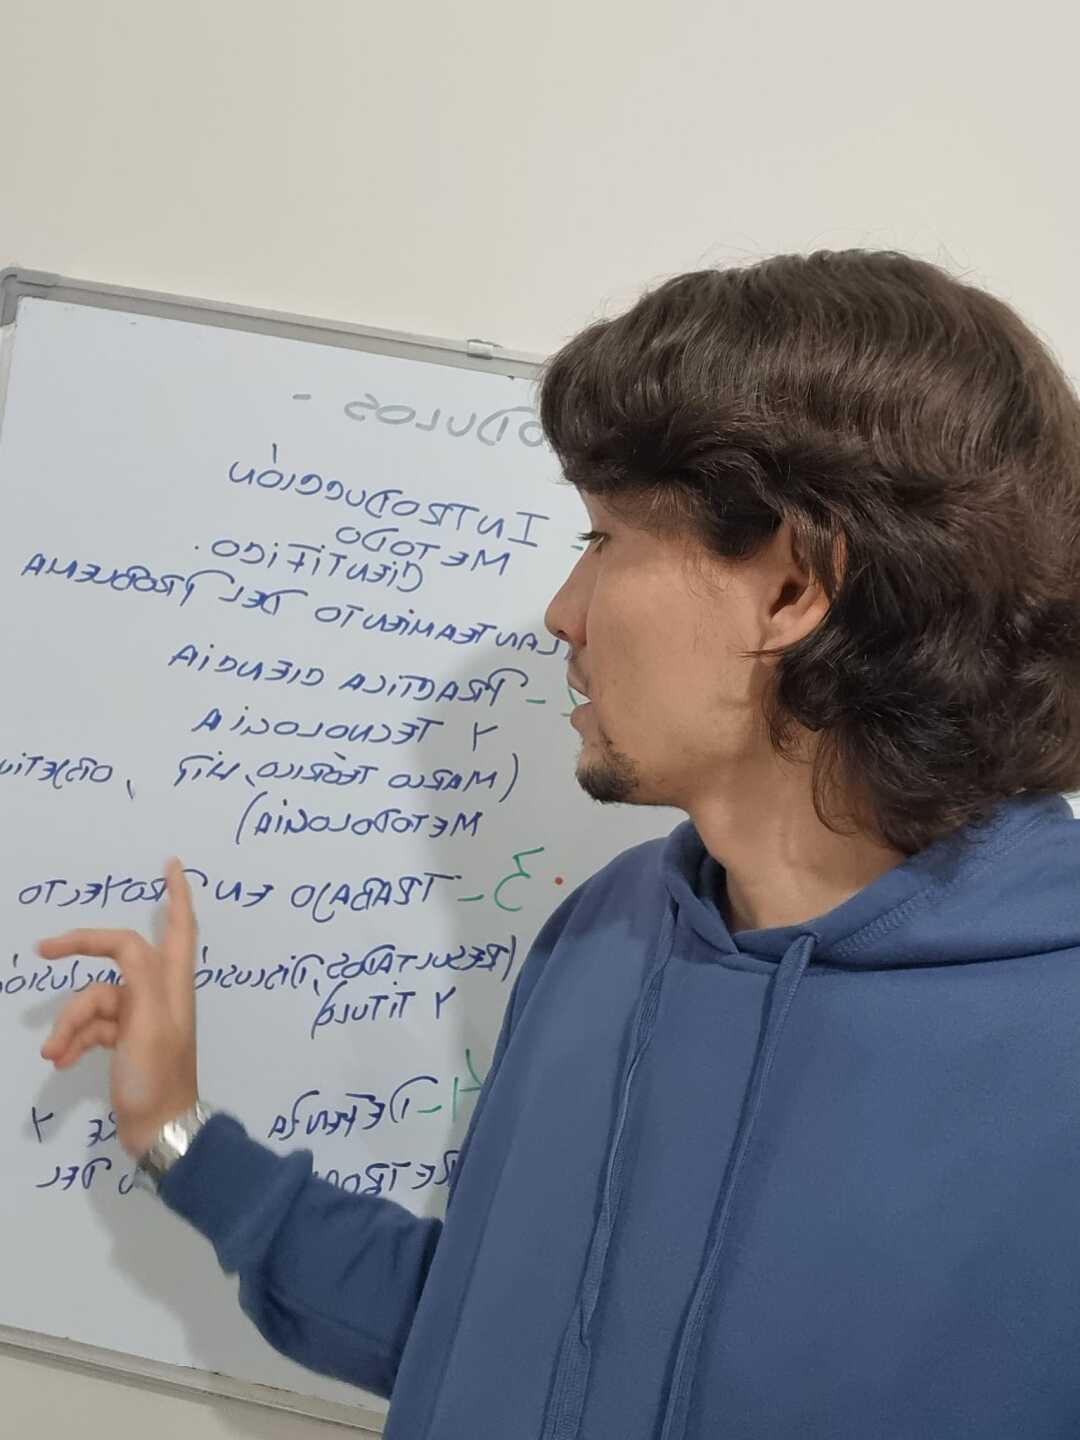 - MÓDULOS -
- INTRODUCCIÓN
METODO
CIENTIFICO.
PLANTEAMIENTO DEL PROBLEMA
- PRACTICA CIENCIA
Y TECNOLOGIA
(MARCO TEÓRICO, HIP, OBJETIV
METODOLOGIA)
3 - TRABAJO EN PROYECTO
(RESULTADOS, DISCUSIÓN CONCLUSIÓN
Y TITULO)
4 - DEFENSA Y
DEL